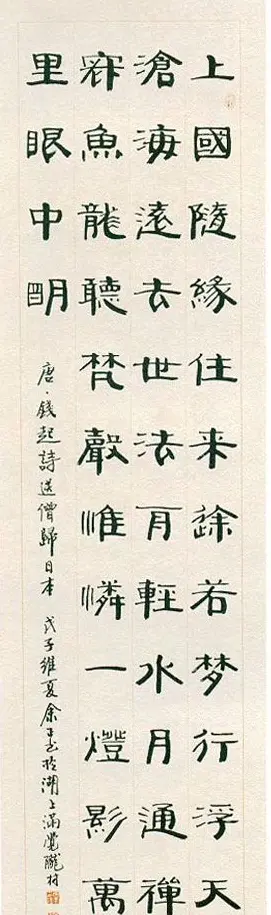 上國隨緣住来途若梦行浮天
滄海遠去世法舟輕水月通禪
寂魚龍聽梵聲惟憐一燈影萬
里眼中明
唐·錢起詩送僧歸日本 戊子維夏余正书於湖上滿覺隴村